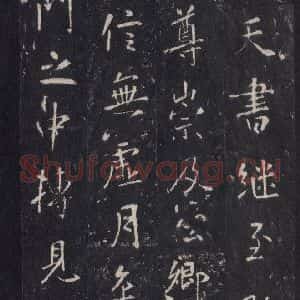 天書继至
尊崇及公卿
信無虚月
門之中特見
Shufawang.CN